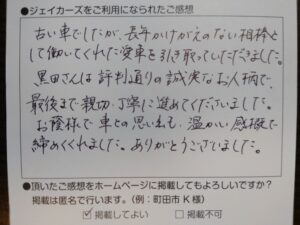 ●ジェイカーズをご利用になられたご感想
古い車でしたが、長年かけがえのない相棒と
して働いてくれた愛車を引き取っていただきました。
黒田さんは評判通りの誠実なお人柄で、
最後まで親切、丁寧に進めてくださいました。
お蔭様で車との思い出も、温かい感慨で
締めくくれました。ありがとうございました。
●頂いたご感想をホームページに掲載してもよろしいですか?
掲載は匿名で行います。(例:町田市 K様)
☑掲載してよい □掲載不可